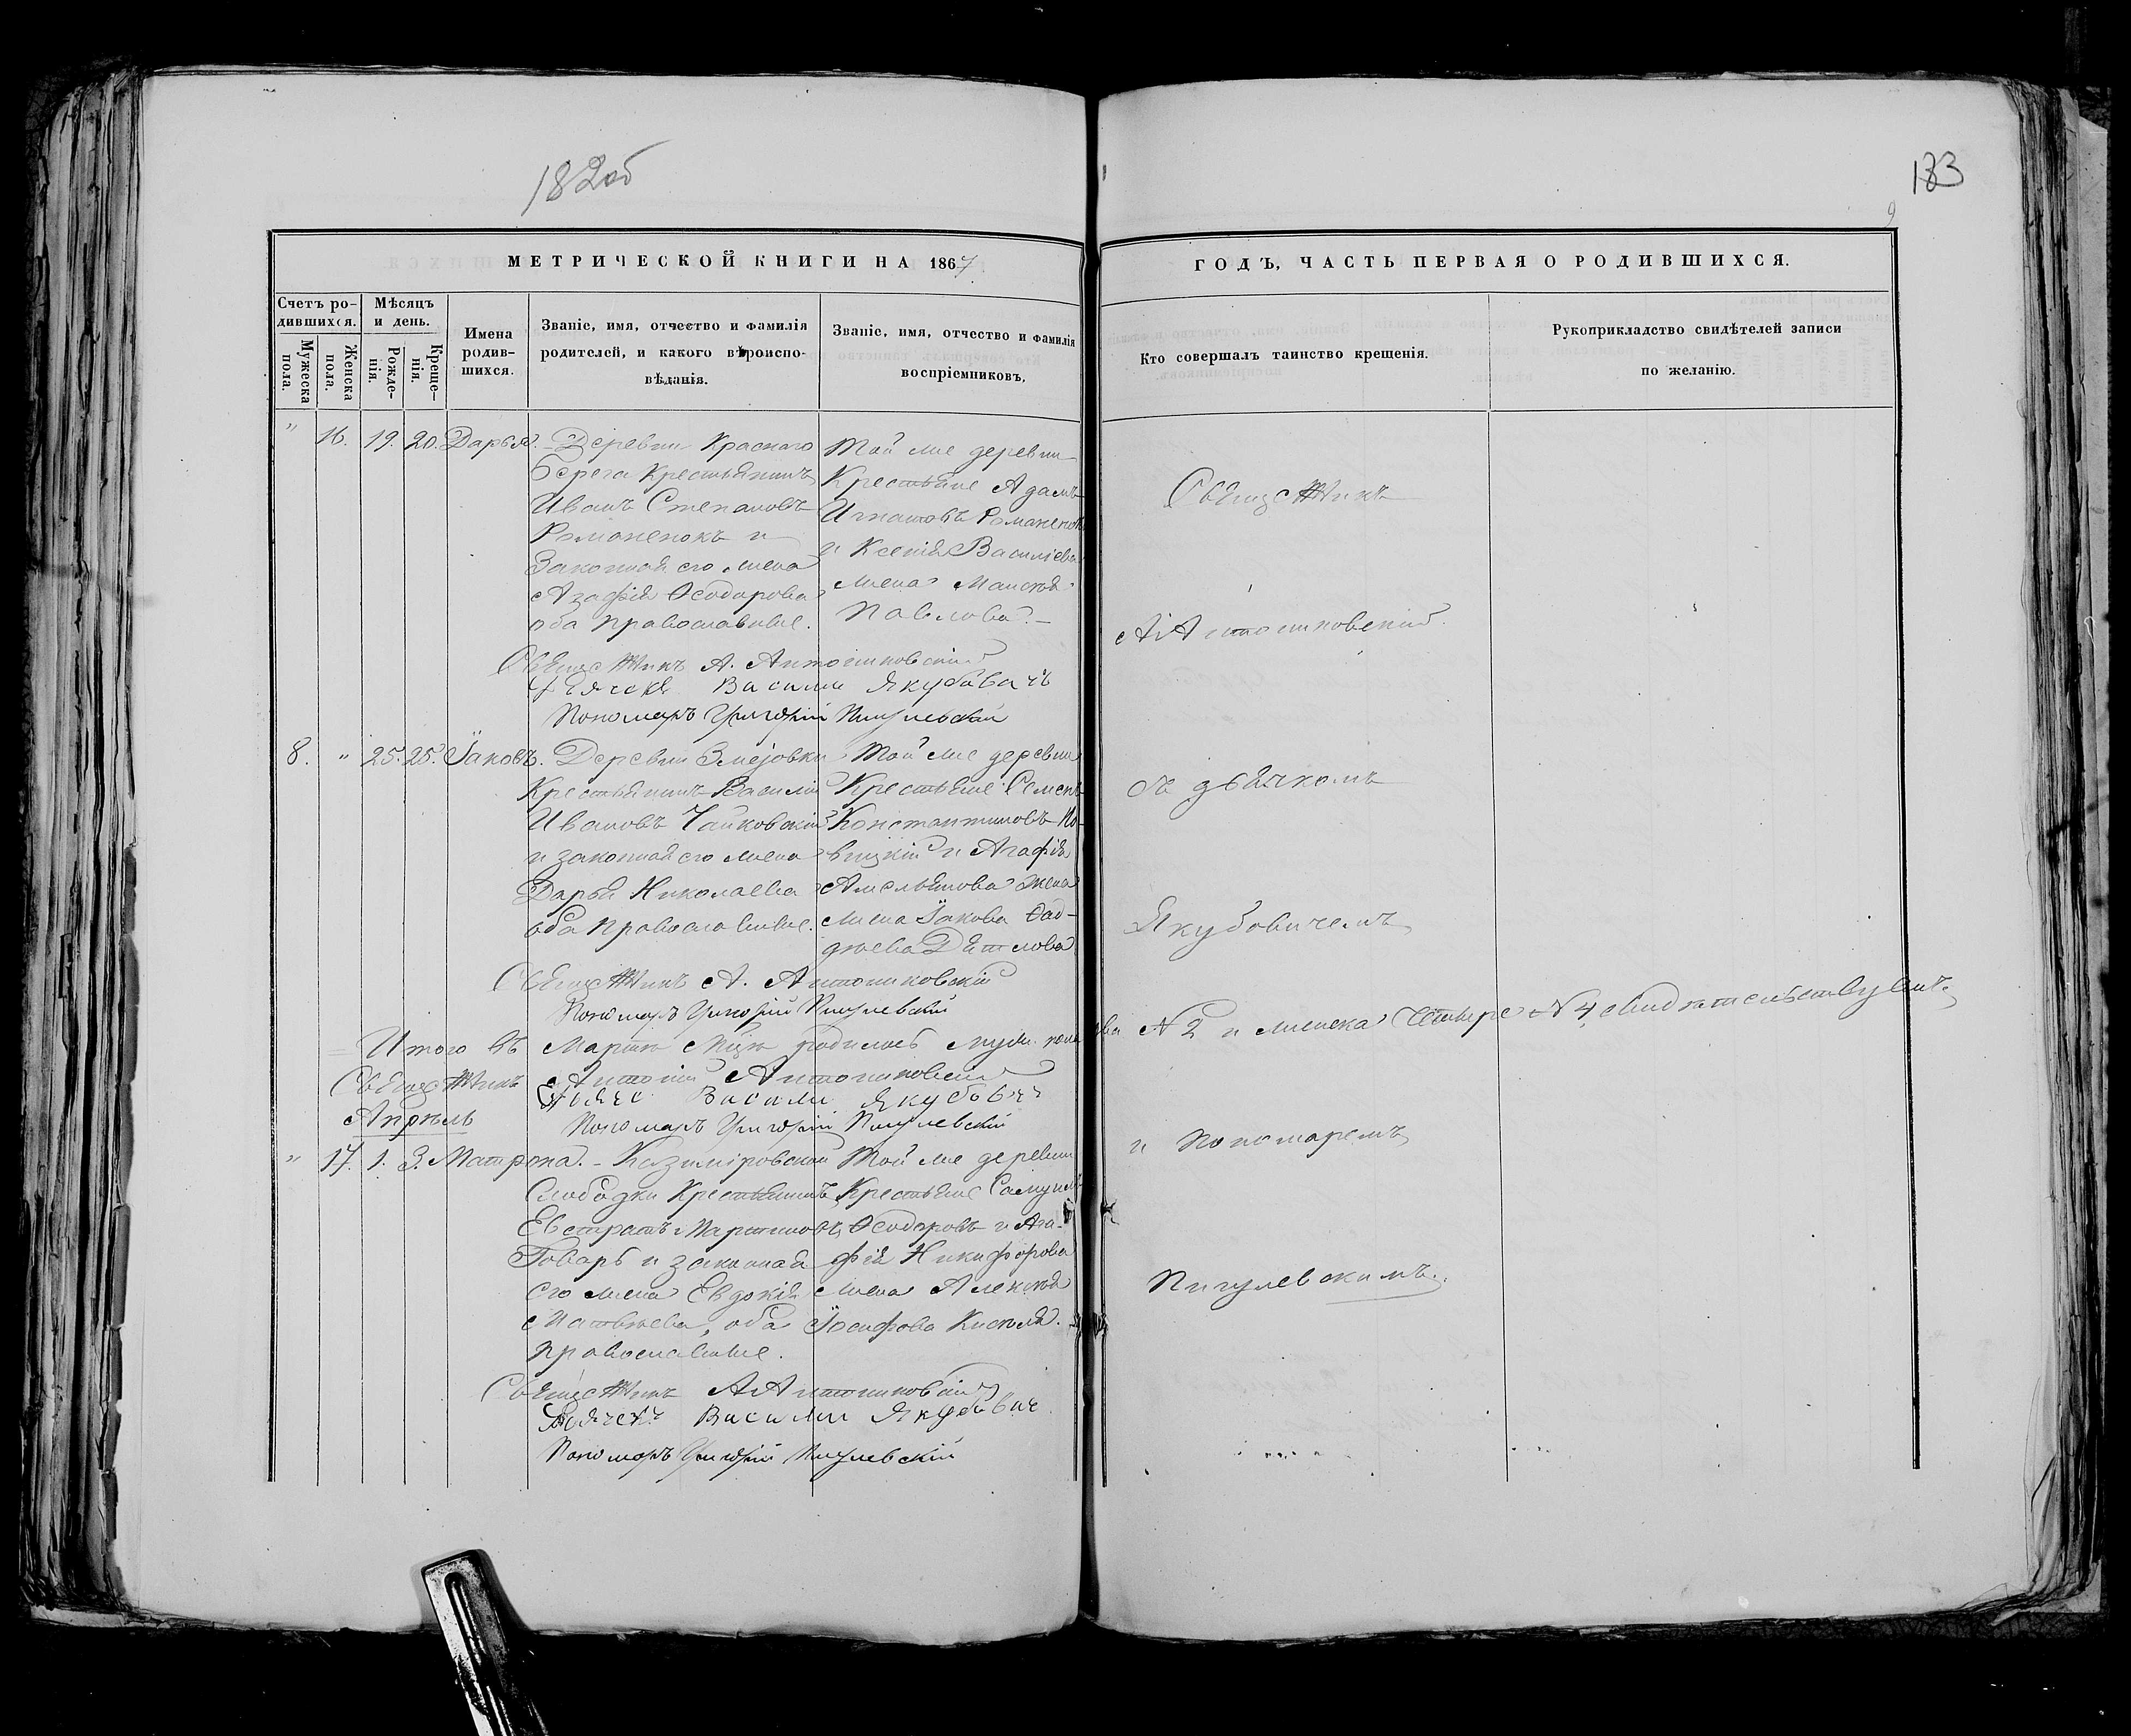 182об
133
9
МЕТРИЧЕСКОЙ КНИГИ НА 1867
ГОДЪ, ЧАСТЬ ПЕРВАЯ О РОДИВШИХСЯ.
Счетъ ро-
дившихся.
Мужеска
пола.
Женска
пола.
Мѣсяцъ
и день.
Рожде-
нія.
Креще-
нія.
Имена
родив-
шихся.
Званіе, имя, отчество и фамилія
родителей, и какого вѣроиспо-
вѣданія.
Званіе, имя, отчество и фамилія
воспріемниковъ,
Кто совершалъ таинство крещенія.
Рукоприкладство свидѣтелей записи
по желанію.
" 16. 19. 20. Дарья.
Деревни Краснаго
Берега Крестьянинъ
Иванъ Степановъ
Романенокъ и
Законная его жена
Агафія Ѳеодорова
оба православные.
Той же деревни
Крестьяне Адамъ
Игнатовъ Романенокъ
и Ксенія Василіева
жена
Павлова.
Священникъ А. Антониковскій
Василий Якубовичъ
Пономарь Григорій Пигулевскій
8. " 25. 25. Іаковъ.
Деревни Змеювки
Крестьянинъ Василій
Ивановъ Чайковскій
и законная его жена
Дарья Николаева
оба православные.
Той же деревни
Крестьяне Семенъ
Константиновъ Но-
вицкій и Агафія
Амельянова жена
Іакова Ѳад-
дѣева Дятлова
Священникъ А. Антониковскій
Пономарь Григорій Пигулевскій
Итого въ Мартѣ Мцѣ родилось муж. пола два № 2 и женска Четыре № 4, свидѣтельствуемъ.
Священникъ Антоній Антониковскій
Василий Якубович
Пономарь Григорій Пигулевскій
Апрѣль
" 17. 1. 3. Матрона.
Казиміровской
Слободки Крестьянинъ
Евстратъ Мартиновъ
Говаръ и законная
его жена Евдокія
Матвѣева, оба
православные.
Той же деревни
Крестьяне Самуилъ
Ѳеодоровъ и Ага-
фія Никифорова
жена Алексѣя
Іосифова Киселя.
Священникъ А Антониковскій
Василий Якубович
Пономарь Григорій Пигулевскій
Священникъ
А Антониковскій.
съ дьячкомъ
Якубовичемъ
и Пономаремъ
Пигулевскимъ.